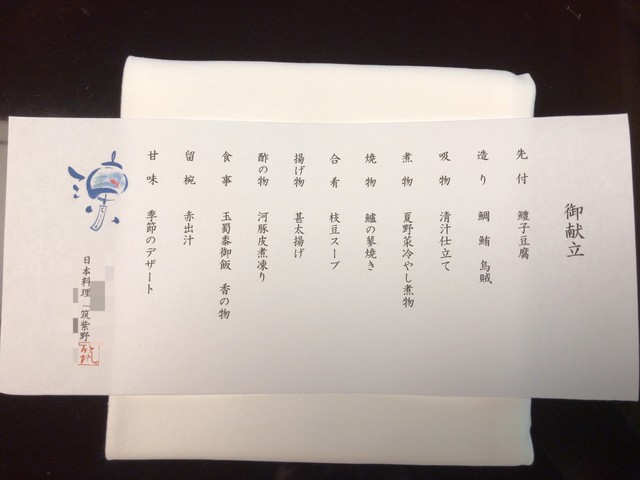 御献立
先付 鱧子豆腐
造り 鯛 鮪 烏賊
吸物 清汁仕立て
煮物 夏野菜冷やし煮物
焼物 鱸の蓼焼き
合肴 枝豆スープ
揚げ物 甚太揚げ
酢の物 河豚皮煮凍り
食事 玉蜀黍御飯 香の物
留椀 赤出汁
甘味 季節のデザート
涼
日本料理「筑紫野」